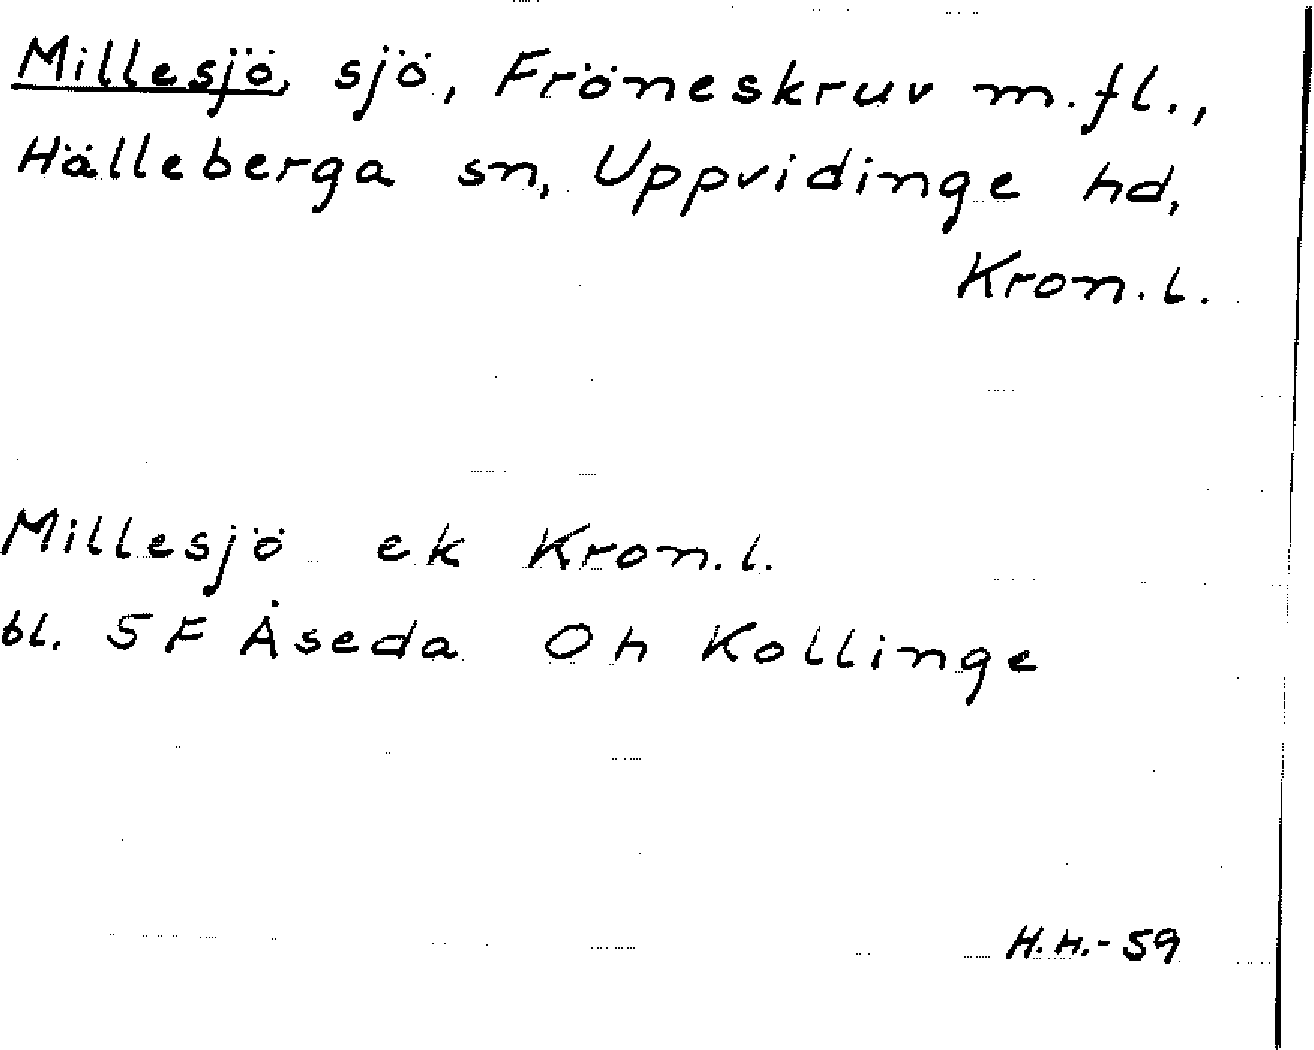 Millesjö, sjö, Fröneskruv m.fl.,
Hälleberga sn, Uppvidinge hd,
Kron.l.
Millesjö ek Kron.l.
bl. 5F Åseda Oh Kollinge
H.H.-59